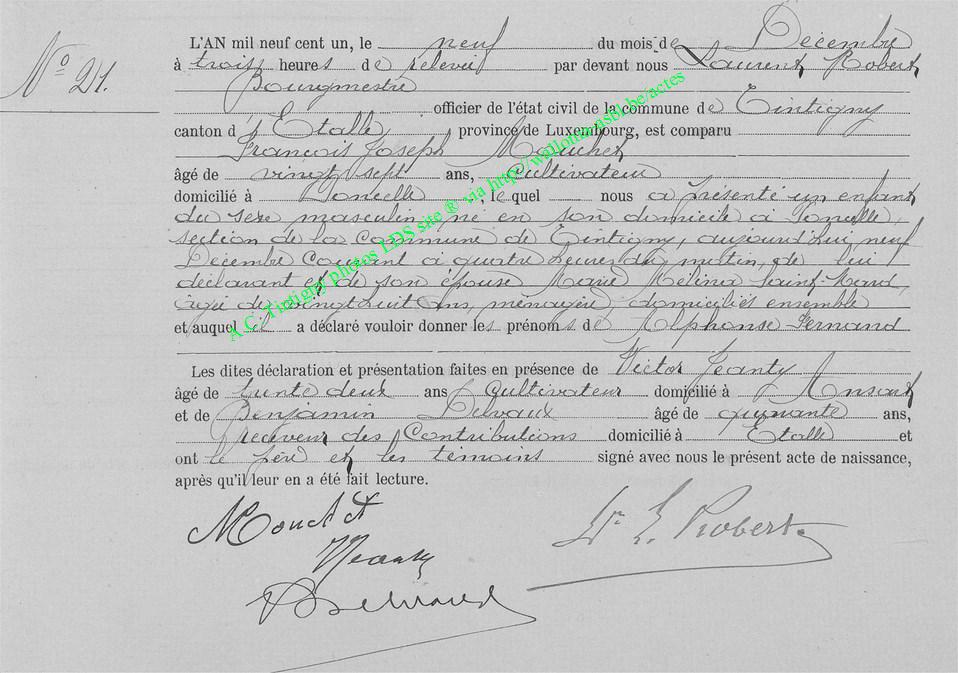 N° 21.
L'AN mil neuf cent un, le neuf du mois de Décembre
à trois heures de relevée par devant nous Laurent Robert
Bourgmestre
officier de l'état civil de la commune de Tintigny
canton d'Etalle, province de Luxembourg, est comparu
François Joseph Mouchet
âgé de vingt sept ans, cultivateur
domicilié à Poncelle, lequel nous a présenté un enfant
du sexe masculin, né en son domicile à Poncelle,
section de la commune de Tintigny, aujourd'hui neuf
Décembre courant à quatre heures du matin, de lui
déclarant et de son épouse Marie Mélina Saint-Mard,
âgée de vingt huit ans, ménagère, domiciliés ensemble
et auquel il a déclaré vouloir donner les prénoms de Alphonse Fernand
Les dites déclaration et présentation faites en présence de Victor Jeanty
âgé de trente deux ans, cultivateur domicilié à Ansart
et de Benjamin Delvaux âgé de quarante ans,
receveur des Contributions domicilié à Etalle et
ont le père et les témoins signé avec nous le présent acte de naissance,
après qu'il leur en a été fait lecture.
Mouchet
L. Robert
VJeanty
BDelvaux
A.C. Tintigny photos LDS site ® via http://wallonia.asbl.be/actes